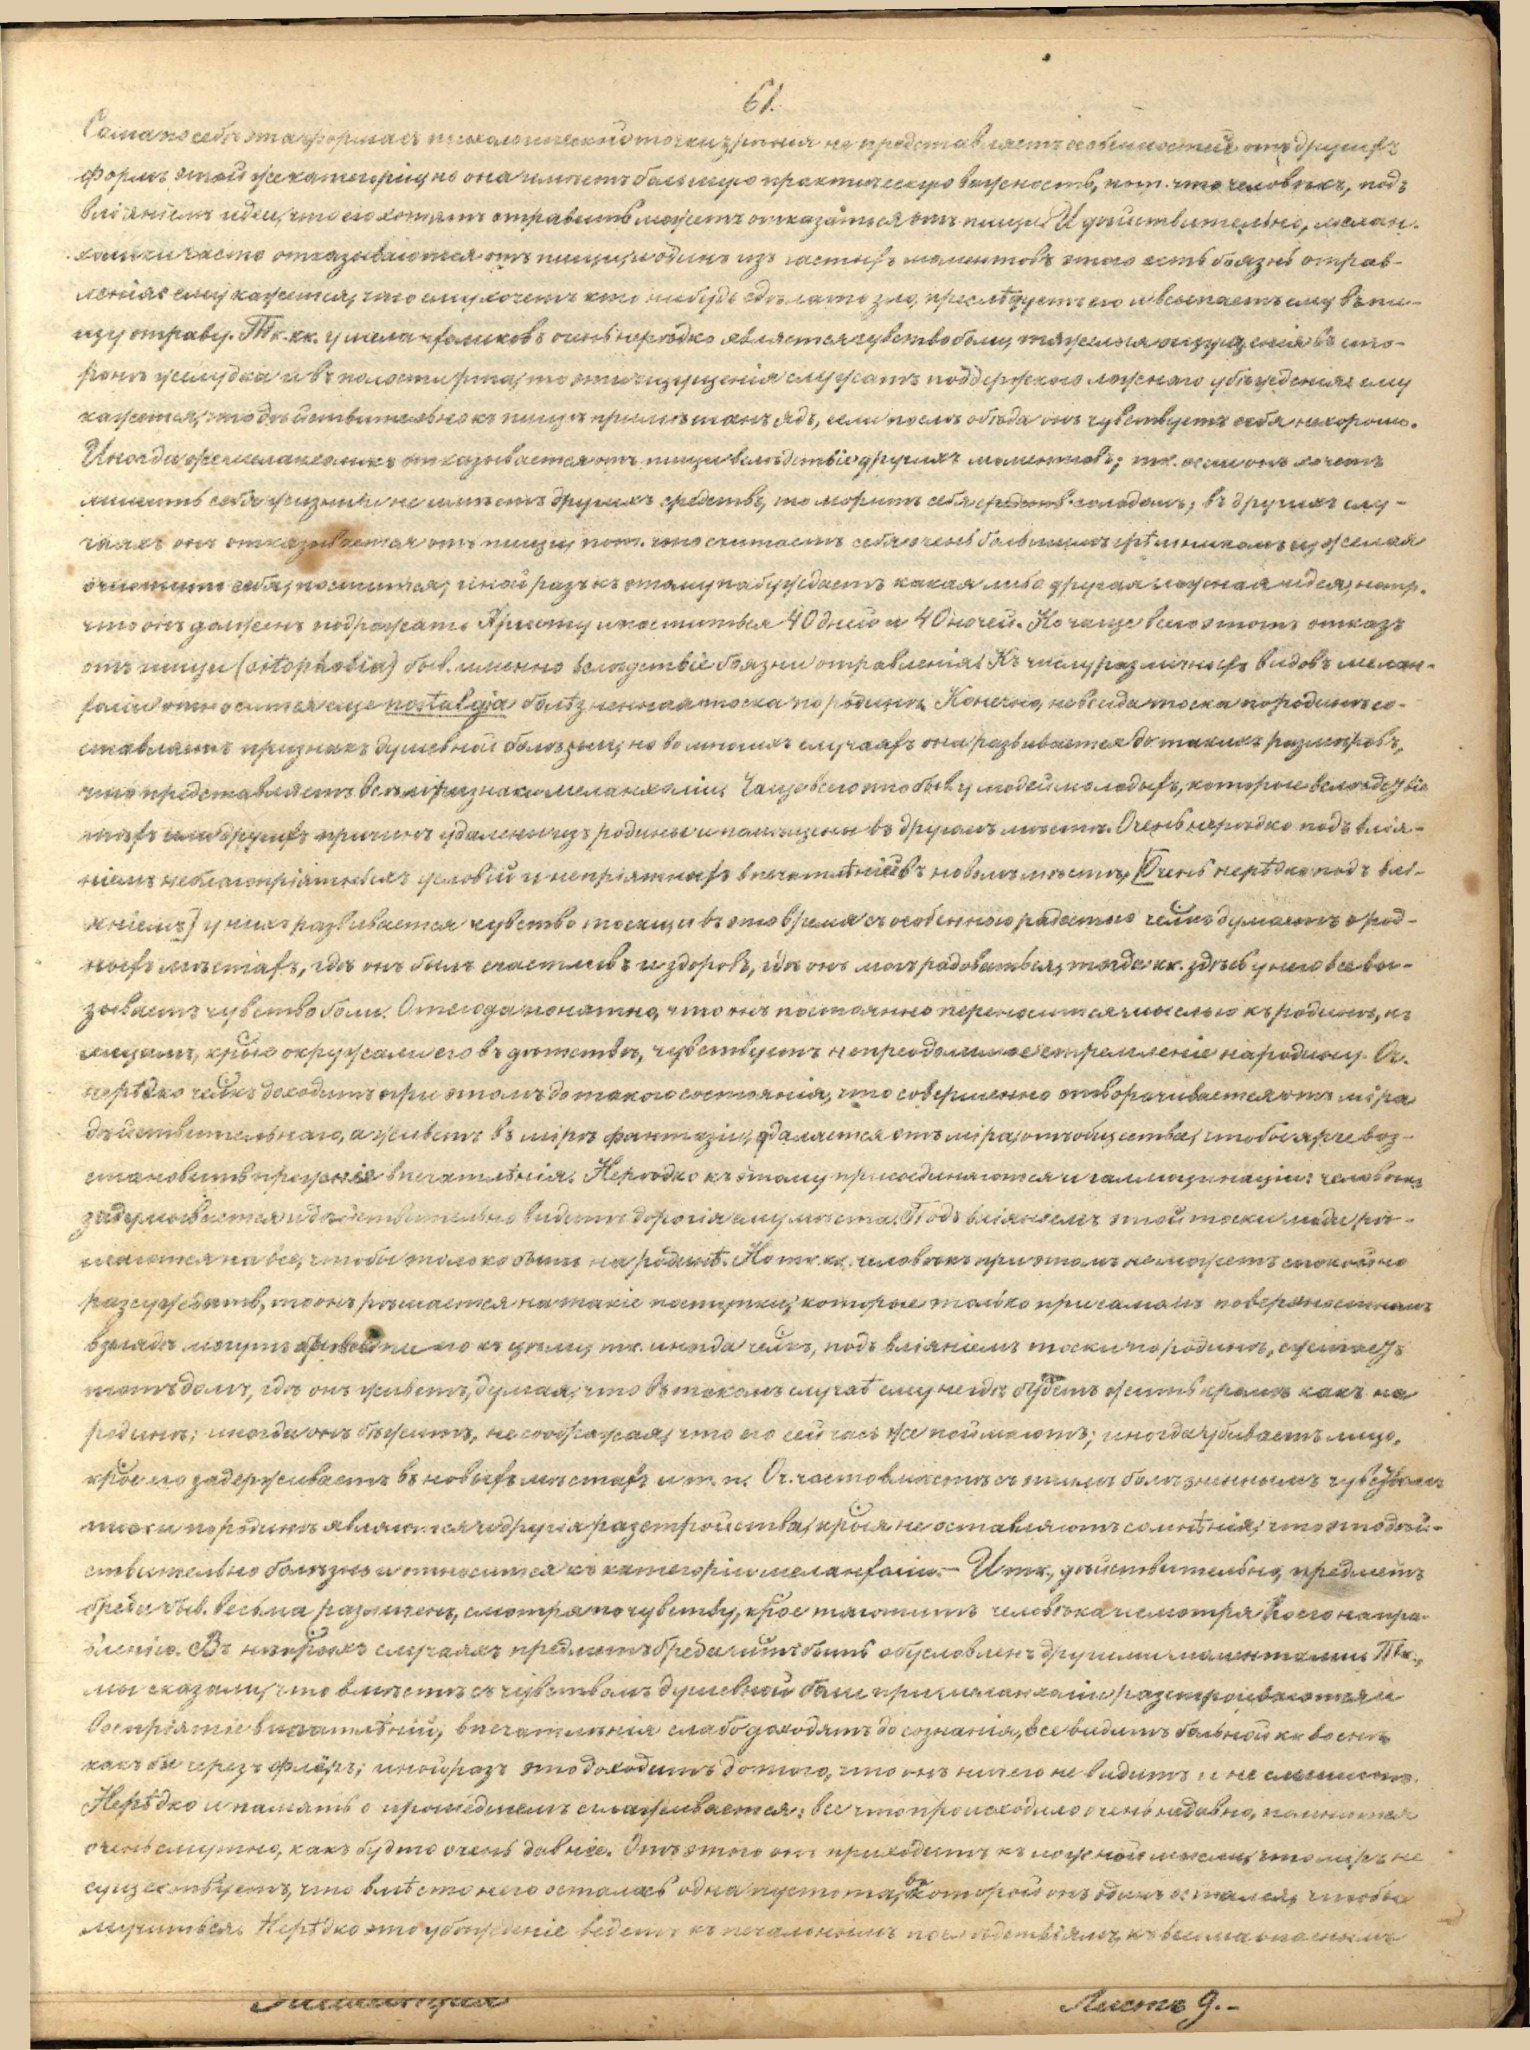 61.
Сама по себѣ эта форма съ психологической точки зрѣнія не представляетъ особенностей отъ другихъ
формъ этой же категоріи, но она имѣетъ большую практическую важность, пот. что человѣкъ, подъ
вліяніемъ идеи, что его хотятъ отравить можетъ отказаться отъ пищи. И дѣйствительно, мелан-
холики часто отказываются отъ пищи, и одинъ изъ частыхъ моментовъ этого есть боязнь отрав-
ленія: ему кажется, что ему хочетъ кто нибудь сдѣлать зло, преслѣдуетъ его и всыпаетъ ему въ пи-
щу отраву. Тк. кк. у меланхоликовъ очень нерѣдко является чувство боли, тяжелыя ощущенія въ сто-
ронѣ желудка и въ полости рта, то эти ощущенія служатъ поддержкою ложнаго убѣжденія: ему
кажется, что дѣйствительно къ пищѣ примѣшанъ ядъ, если послѣ обѣда онъ чувствуетъ себя нехорошо.
Иногда же меланхоликъ отказывается отъ пищи вслѣдствіе другихъ моментовъ; тк. если онъ хочетъ
лишить себя жизни и не имѣетъ другихъ средствъ, то моритъ себя голодомъ; въ другихъ слу-
чаяхъ онъ отказывается отъ пищи, пот. что считаетъ себя очень большимъ грѣшникомъ и, желая
очистить себя, постится; иной разъ къ этому побуждаетъ какая либо другая ложная идея, напр.
что онъ долженъ подражать Христу и поститься 40 дней и 40 ночей. Но чаще всего этотъ отказъ
отъ пищи (sitophobia) быв. именно вслѣдствіе боязни отравленія. Къ числу различныхъ видовъ мелан-
холіи относится еще nostalgia, болѣзненная тоска по родинѣ. Конечно, не всегда тоска по родинѣ со-
ставляетъ признакъ душевной болѣзни, но во многихъ случаяхъ она развивается до такихъ размѣровъ,
что представляетъ всѣ признаки меланхоліи. Чаще всего это быв. у людей молодыхъ, которые вслѣдствіе
тѣхъ или другихъ причинъ удалены изъ родины и помѣщены въ другомъ мѣстѣ. Очень нерѣдко подъ влія-
ніемъ неблагопріятныхъ условій и непріятныхъ впечатлѣній въ новомъ мѣстѣ, [Очень нерѣдко подъ влі-
яніемъ] у нихъ развивается чувство тоски, и въ это время съ особенною радостью челкъ думаетъ о род-
ныхъ мѣстахъ, гдѣ онъ былъ счастливъ и здоровъ, гдѣ онъ могъ радоваться, тогда кк. здѣсь у него все вы-
зываетъ чувство боли. Отсюда понятно, что онъ постоянно переносится мыслью къ родинѣ, къ
лицамъ, крыя окружали его въ дѣтствѣ, чувствуетъ непреодолимое стремленіе на родину. Оч.
нерѣдко челкъ доходитъ при этомъ до такого состоянія, что совершенно отворачивается отъ міра
дѣйствительнаго, а живетъ въ мірѣ фантазіи, удаляется отъ міра, отъ общества, чтобы ярче воз-
становить прежнія впечатлѣнія. Нерѣдко къ этому присоединяются и галлюцинаціи: человѣкъ
задумывается и дѣйствительно видитъ дорогія ему мѣста. Подъ вліяніемъ этой тоски люди рѣ-
шаются на все, чтобы только быть на родинѣ. Но тк. кк. человѣкъ при этомъ не можетъ спокойно
разсуждать, то онъ рѣшается на такіе поступки, которые только при самомъ поверхностномъ
взглядѣ могутъ привести его къ цѣли; тк. иногда челкъ, подъ вліяніемъ тоски по родинѣ, сжигаетъ
тотъ домъ, гдѣ онъ живетъ, думая, что въ такомъ случаѣ ему негдѣ будетъ жить кромѣ какъ на
родинѣ; иногда онъ бѣжитъ, не соображая, что его сейчасъ же поймаютъ; иногда убиваетъ лицо,
крое его задерживаетъ въ новыхъ мѣстахъ и т. п. Оч. часто вмѣстѣ съ этимъ болѣзненнымъ чувствомъ
тоски по родинѣ являются и другія разстройства, крыя не оставляютъ сомнѣнія, что это дѣй-
ствительно болѣзнь и относится къ категоріи меланхоліи. — Итк., дѣйствительно, предметъ
бреда быв. весьма различенъ, смотря по чувству, крое тяготитъ человѣка и смотря по его напра-
вленію. Въ нѣкрыхъ случаяхъ предметъ бреда мтъ быть обусловленъ другими моментами. Тк.,
мы сказали, что вмѣстѣ съ чувствомъ душевной боли при меланхоліи разстроивается и
воспріятіе впечатлѣній; впечатлѣнія слабо доходятъ до сознанія, все видитъ больной кк во снѣ,
какъ бы черезъ флёръ; иной разъ это доходитъ до того, что онъ ничего не видитъ и не слышитъ.
Нерѣдко и память о прошедшемъ сглаживается: все что происходило очень недавно, помнится
очень смутно, какъ будто очень давнее. Отъ этого онъ приходитъ къ ложной мысли, что міръ не
существуетъ, что вмѣсто него осталась одна пустота, въ которой онъ одинъ остался, чтобы
мучиться. Нерѣдко это убѣжденіе ведетъ къ печальнымъ послѣдствіямъ, къ весьма опаснымъ
Листъ 9. –